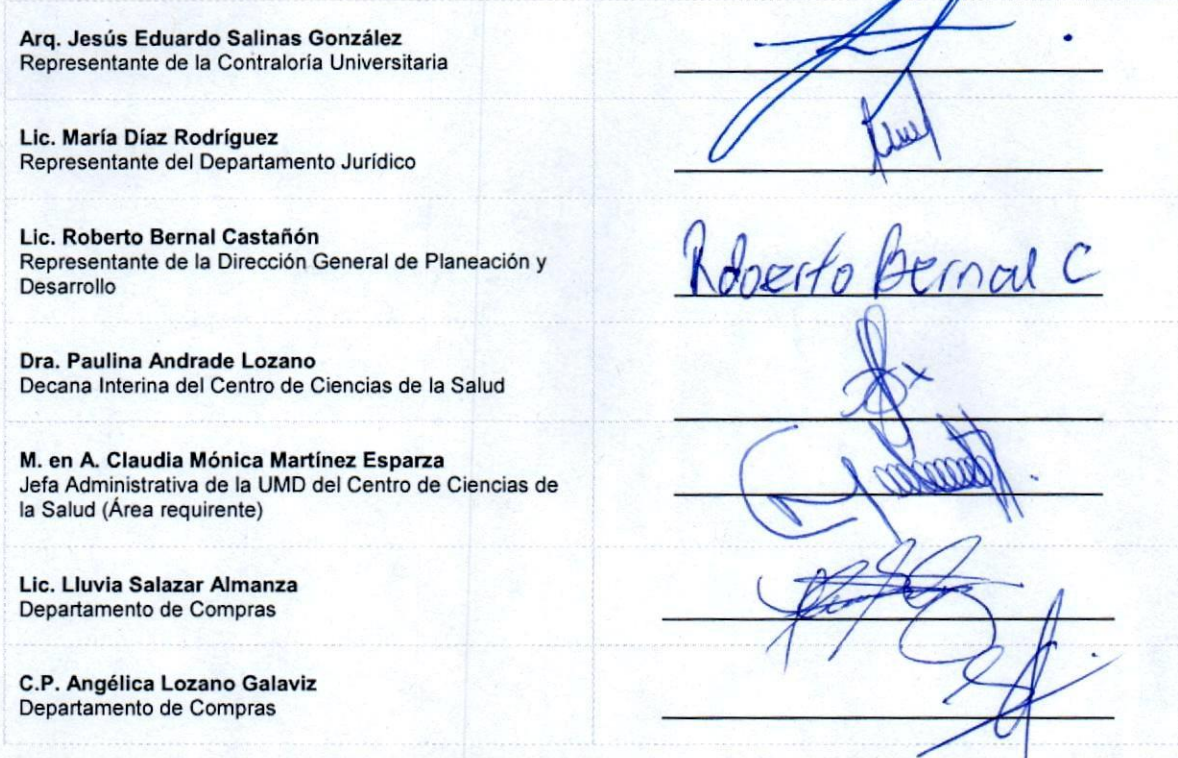 Arq. Jesús Eduardo Salinas González
Representante de la Contraloría Universitaria
Lic. María Díaz Rodríguez
Representante del Departamento Jurídico
Lic. Roberto Bernal Castañón
Representante de la Dirección General de Planeación y
Desarrollo
Roberto Bernal C
Dra. Paulina Andrade Lozano
Decana Interina del Centro de Ciencias de la Salud
M. en A. Claudia Mónica Martínez Esparza
Jefa Administrativa de la UMD del Centro de Ciencias de
la Salud (Área requirente)
Lic. Lluvia Salazar Almanza
Departamento de Compras
C.P. Angélica Lozano Galaviz
Departamento de Compras